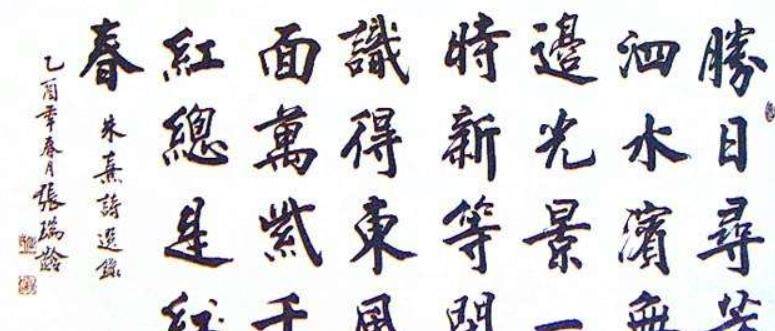 勝日尋芳
泗水濱無
邊光景一
時新等
識得東風
面萬紫千
紅總是
春
朱熹詩選錄
乙酉季春月張瑞齡